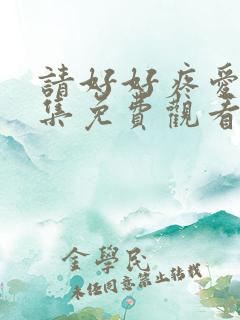 請好好疼愛
集免費觀看
金學民
未经同意禁止转载